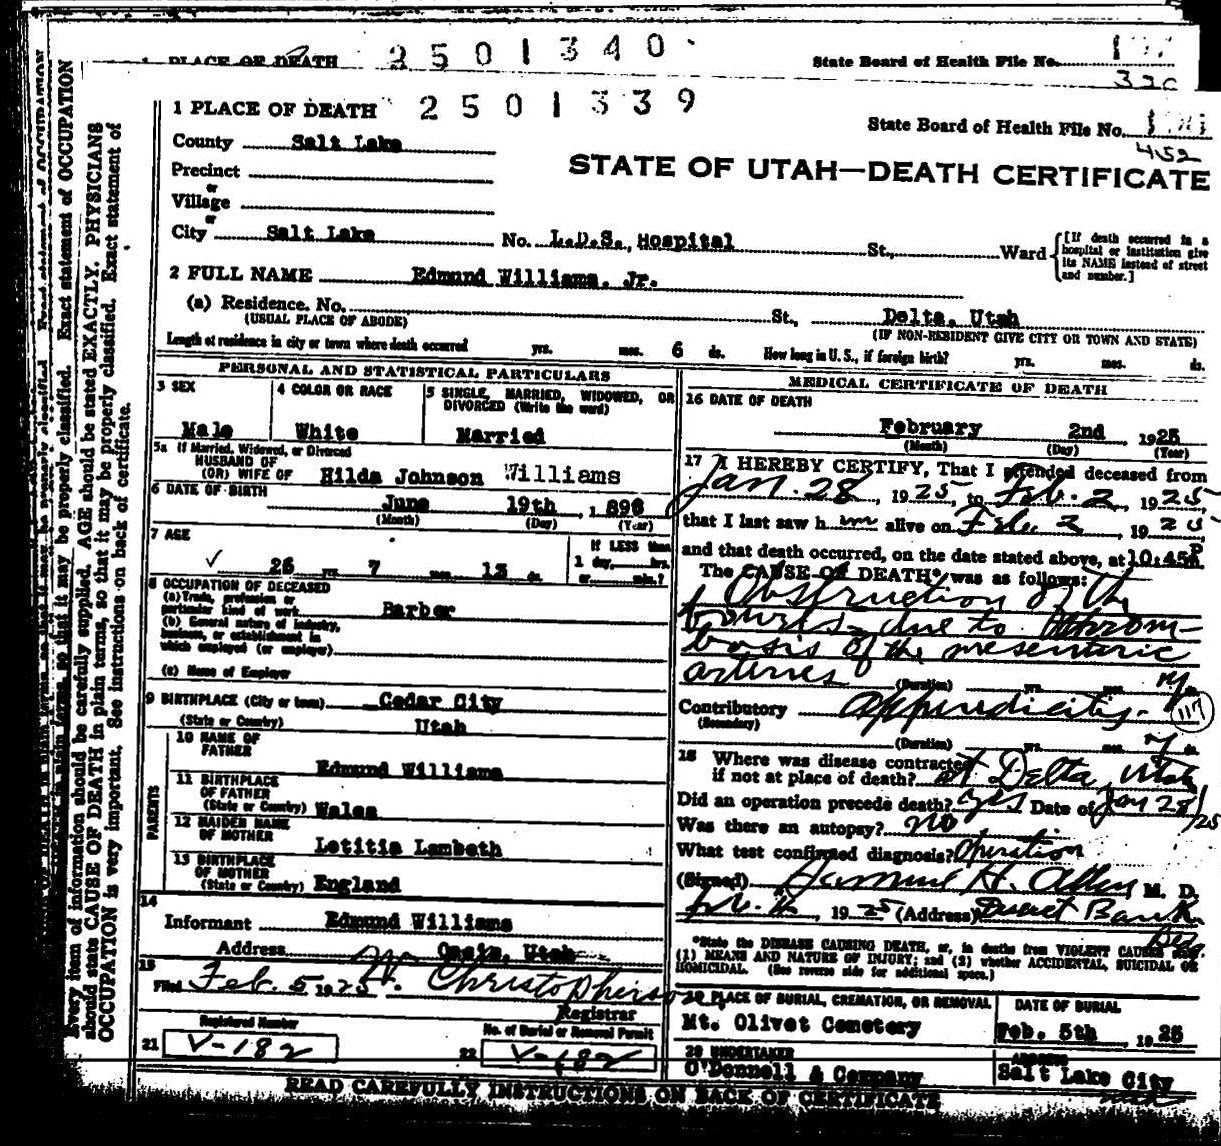 1 PLACE OF DEATH 2501340
State Board of Health File No.
1 PLACE OF DEATH 2501339
State Board of Health File No.
452
County Salt Lake
STATE OF UTAH—DEATH CERTIFICATE
Precinct
or
Village
or
City Salt Lake No. L.D.S. Hospital St., Ward [If death occurred in a hospital or institution give its NAME instead of street and number.]
2 FULL NAME Edmund Williams, Jr.
(a) Residence. No. St., Delta, Utah
(USUAL PLACE OF ABODE) (IF NON-RESIDENT GIVE CITY OR TOWN AND STATE)
Length of residence in city or town where death occurred yrs. mos. 6 ds. How long in U. S., if foreign birth? yrs. mos. ds.
PERSONAL AND STATISTICAL PARTICULARS
3 SEX
Male
4 COLOR OR RACE
White
5 SINGLE, MARRIED, WIDOWED, OR
DIVORCED (Write the word)
Married
5a If Married, Widowed, or Divorced
HUSBAND OF
(OR) WIFE OF Hilda Johnson Williams
6 DATE OF BIRTH
June 19th, 1896
(Month) (Day) (Year)
7 AGE
26 yrs 7 mos. 13 ds.
If LESS than
1 day, hrs.
or min.?
8 OCCUPATION OF DECEASED
(a) Trade, profession or
particular kind of work Barber
(b) General nature of industry,
business, or establishment in
which employed (or employer)
(c) Name of Employer
9 BIRTHPLACE (City or town) Cedar City
(State or Country) Utah
PARENTS
10 NAME OF
FATHER Edmund Williams
11 BIRTHPLACE
OF FATHER
(State or Country) Wales
12 MAIDEN NAME
OF MOTHER Letitia Lambeth
13 BIRTHPLACE
OF MOTHER
(State or Country) England
14
Informant Edmund Williams
Address Utah
15
Filed Feb. 5 1925 Christopherson
Registrar
Registered Number
21 V-182
No. of Burial or Removal Permit
22 V-182
MEDICAL CERTIFICATE OF DEATH
16 DATE OF DEATH
February 2nd 1925
(Month) (Day) (Year)
17 I HEREBY CERTIFY, That I attended deceased from
Jan. 28, 1925, to Feb. 2, 1925,
that I last saw him alive on Feb. 2, 1925
and that death occurred, on the date stated above, at 10:45P m.
The CAUSE OF DEATH* was as follows:
Obstruction of the
bowels due to throm-
bosis of the mesenteric
arteries
(Duration) yrs. mos. ds.
Contributory Appendicitis. 117
(Secondary)
(Duration) yrs. mos. ds.
18 Where was disease contracted
if not at place of death? at Delta, Utah
Did an operation precede death? Yes Date of Jan 28/25
Was there an autopsy? no
What test confirmed diagnosis? Operation
(Signed) Samuel H. Allen, M. D.
1925 (Address) Deseret Bank Bldg
*State the DISEASE CAUSING DEATH, or, in deaths from VIOLENT CAUSES
(1) MEANS AND NATURE OF INJURY; and (2) whether ACCIDENTAL, SUICIDAL OR
HOMICIDAL. (See reverse side for additional space.)
PLACE OF BURIAL, CREMATION, OR REMOVAL
Mt. Olivet Cemetery
DATE OF BURIAL
Feb. 5th 1925
20 UNDERTAKER
O'Donnell & Company
ADDRESS
Salt Lake City
READ CAREFULLY INSTRUCTIONS ON BACK OF CERTIFICATE
Every item of information should be carefully supplied. AGE should be stated EXACTLY. PHYSICIANS
should state CAUSE OF DEATH in plain terms, so that it may be properly classified. Exact statement of
OCCUPATION is very important. See instructions on back of certificate.